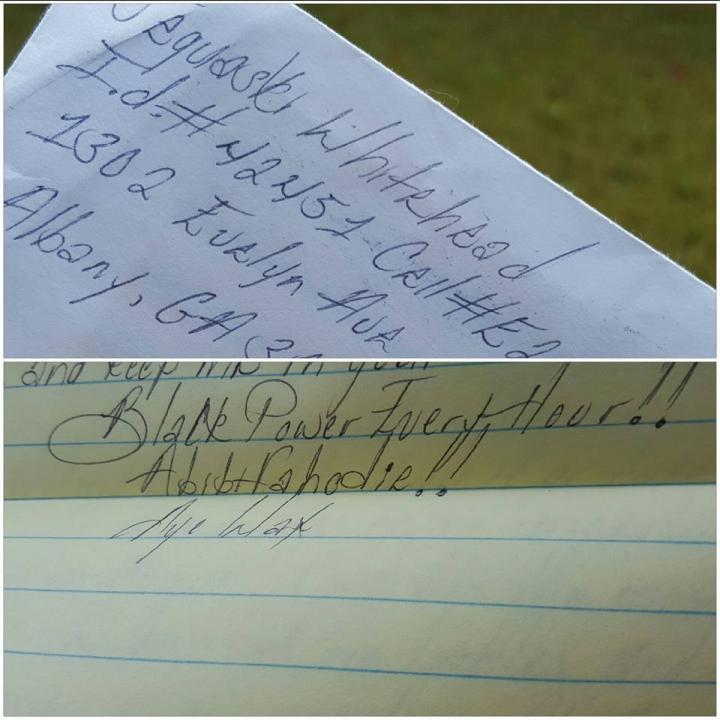 Jequaski Whitehead
I.d.# 42451 Cell #E2
1302 Evelyn Ave
Albany, GA
and keep me in your
Black Power Every Hour!!
Abibifahodie!!
Aye Wax